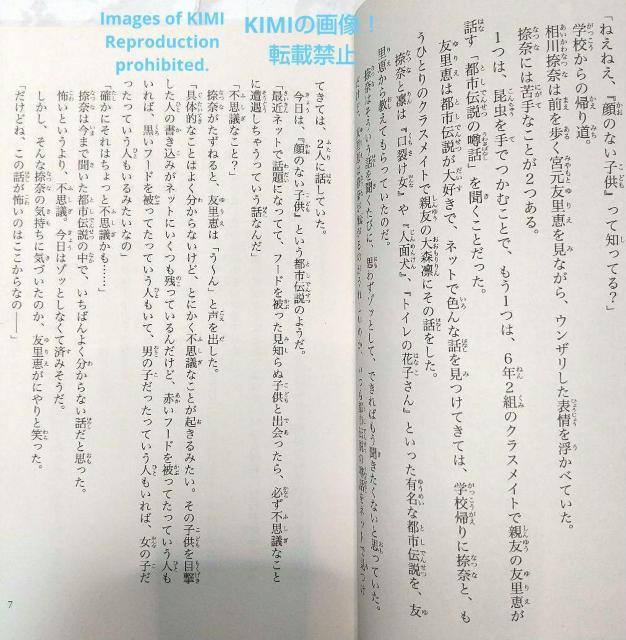 Images of KIMI
Reproduction
prohibited.
KIMIの画像！
転載禁止
「ねえねえ、『顔のない子供』って知ってる？」
学校からの帰り道。
相川捺奈は前を歩く宮元友里恵を見ながら、ウンザリした表情を浮かべていた。
捺奈には苦手なことが２つある。
１つは、昆虫を手でつかむことで、もう１つは、６年２組のクラスメイトで親友の友里恵が
話す「都市伝説の噂話」を聞くことだった。
友里恵は都市伝説が大好きで、ネットで色んな話を見つけてきては、学校帰りに捺奈と、も
うひとりのクラスメイトで親友の大森凛にその話をした。
捺奈と凛は『口裂け女』や『人面犬』、『トイレの花子さん』といった有名な都市伝説を、友
里恵から教えてもらっていたのだ。
捺奈はそういう話を聞くたびに、思わずゾッとして、できればもう聞きたくないと思っていた。
てきては、２人に話していた。
今日は、『顔のない子供』という都市伝説のようだ。
「最近ネットで話題になってて、フードを被った見知らぬ子供と出会ったら、必ず不思議なこと
に遭遇しちゃうっていう話なんだ」
「不思議なこと？」
捺奈がたずねると、友里恵は「う〜ん」と声を出した。
「具体的なことはよく分からないけど、とにかく不思議なことが起きるみたい。その子供を目撃
した人の書き込みがネットにいくつも残っているんだけど、赤いフードを被ってたっていう人も
いれば、黒いフードを被ってたっていう人もいて、男の子だったっていう人もいれば、女の子だ
ったっていう人もいるみたいなの」
「確かにそれはちょっと不思議かも……」
捺奈は今まで聞いた都市伝説の中で、いちばんよく分からない話だと思った。
怖いというより、不思議。今日はゾッとしなくて済みそうだ。
しかし、そんな捺奈の気持ちに気づいたのか、友里恵がにやりと笑った。
「だけどね、この話が怖いのはここからなの――」
7